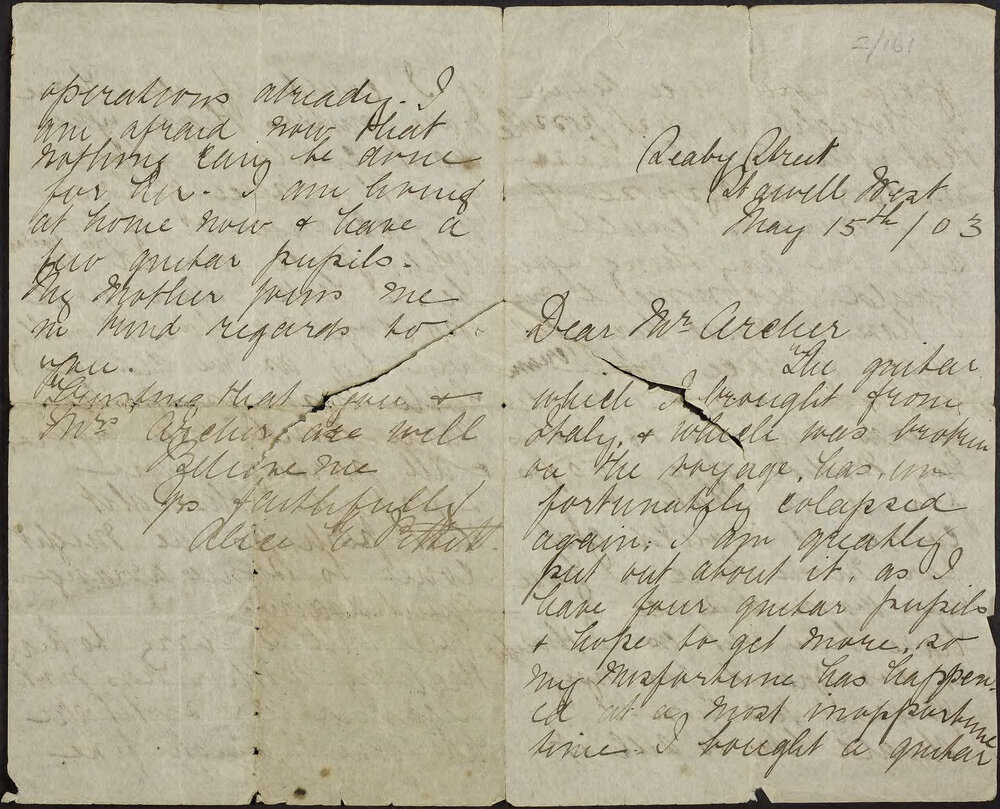 operations already. I
am afraid now that
nothing can be done
for her. I am living
at home now & have a
few guitar pupils.
My Mother joins me
in kind regards to
you.
Trusting that you &
Mrs Archer are well
Believe me
yrs faithfully
Alice C
2/161
Seaby Street
Stawell West
May 15th /03
Dear Mr Archer
The guitar
which I brought from
Italy, & which was broken
on the voyage, has, un
fortunately colapsed
again; I am greatly
put out about it, as I
have four guitar pupils
& hope to get more, so
my misfortune has happen-
ed at a most inopportune
time. I bought a guitar